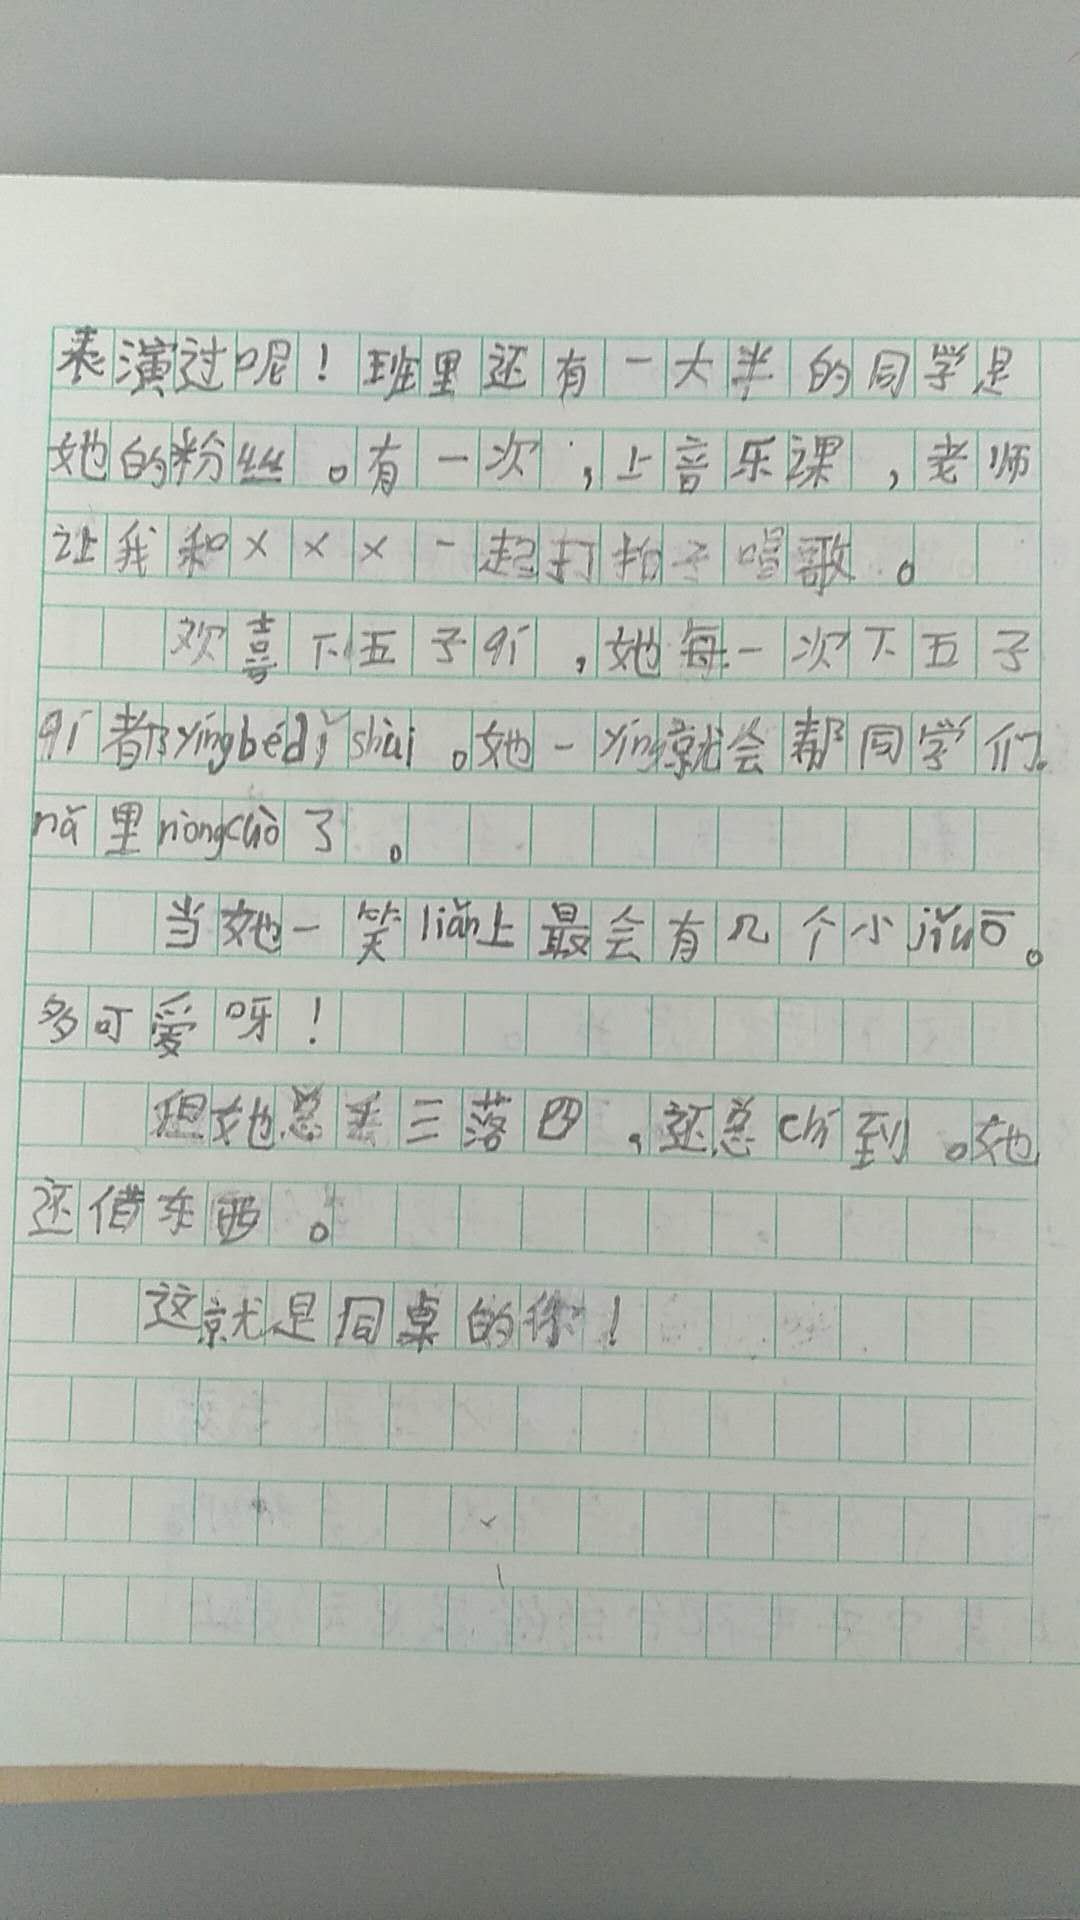 表演过呢！班里还有一大半的同学是
她的粉丝。有一次，上音乐课，老师
让我和×××一起打拍子唱歌。
欢喜下五子qí，她每一次下五子
qí都yíngbédìshuì。她一yíng就会帮同学们
nǎ里nòngcuò了。
当她一笑liǎn上最会有几个小jiǔō。
多可爱呀！
但她总丢三落四，还总chí到。她
还借东西。
这就是同桌的你！